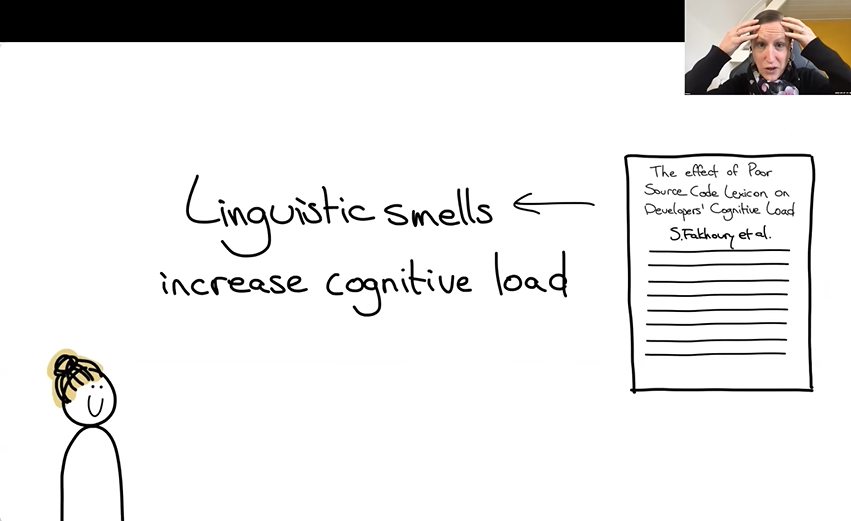 Linguistic smells
increase cognitive load
The effect of Poor
Source Code Lexicon on
Developers' Cognitive Load
S.Fakhoury et al.